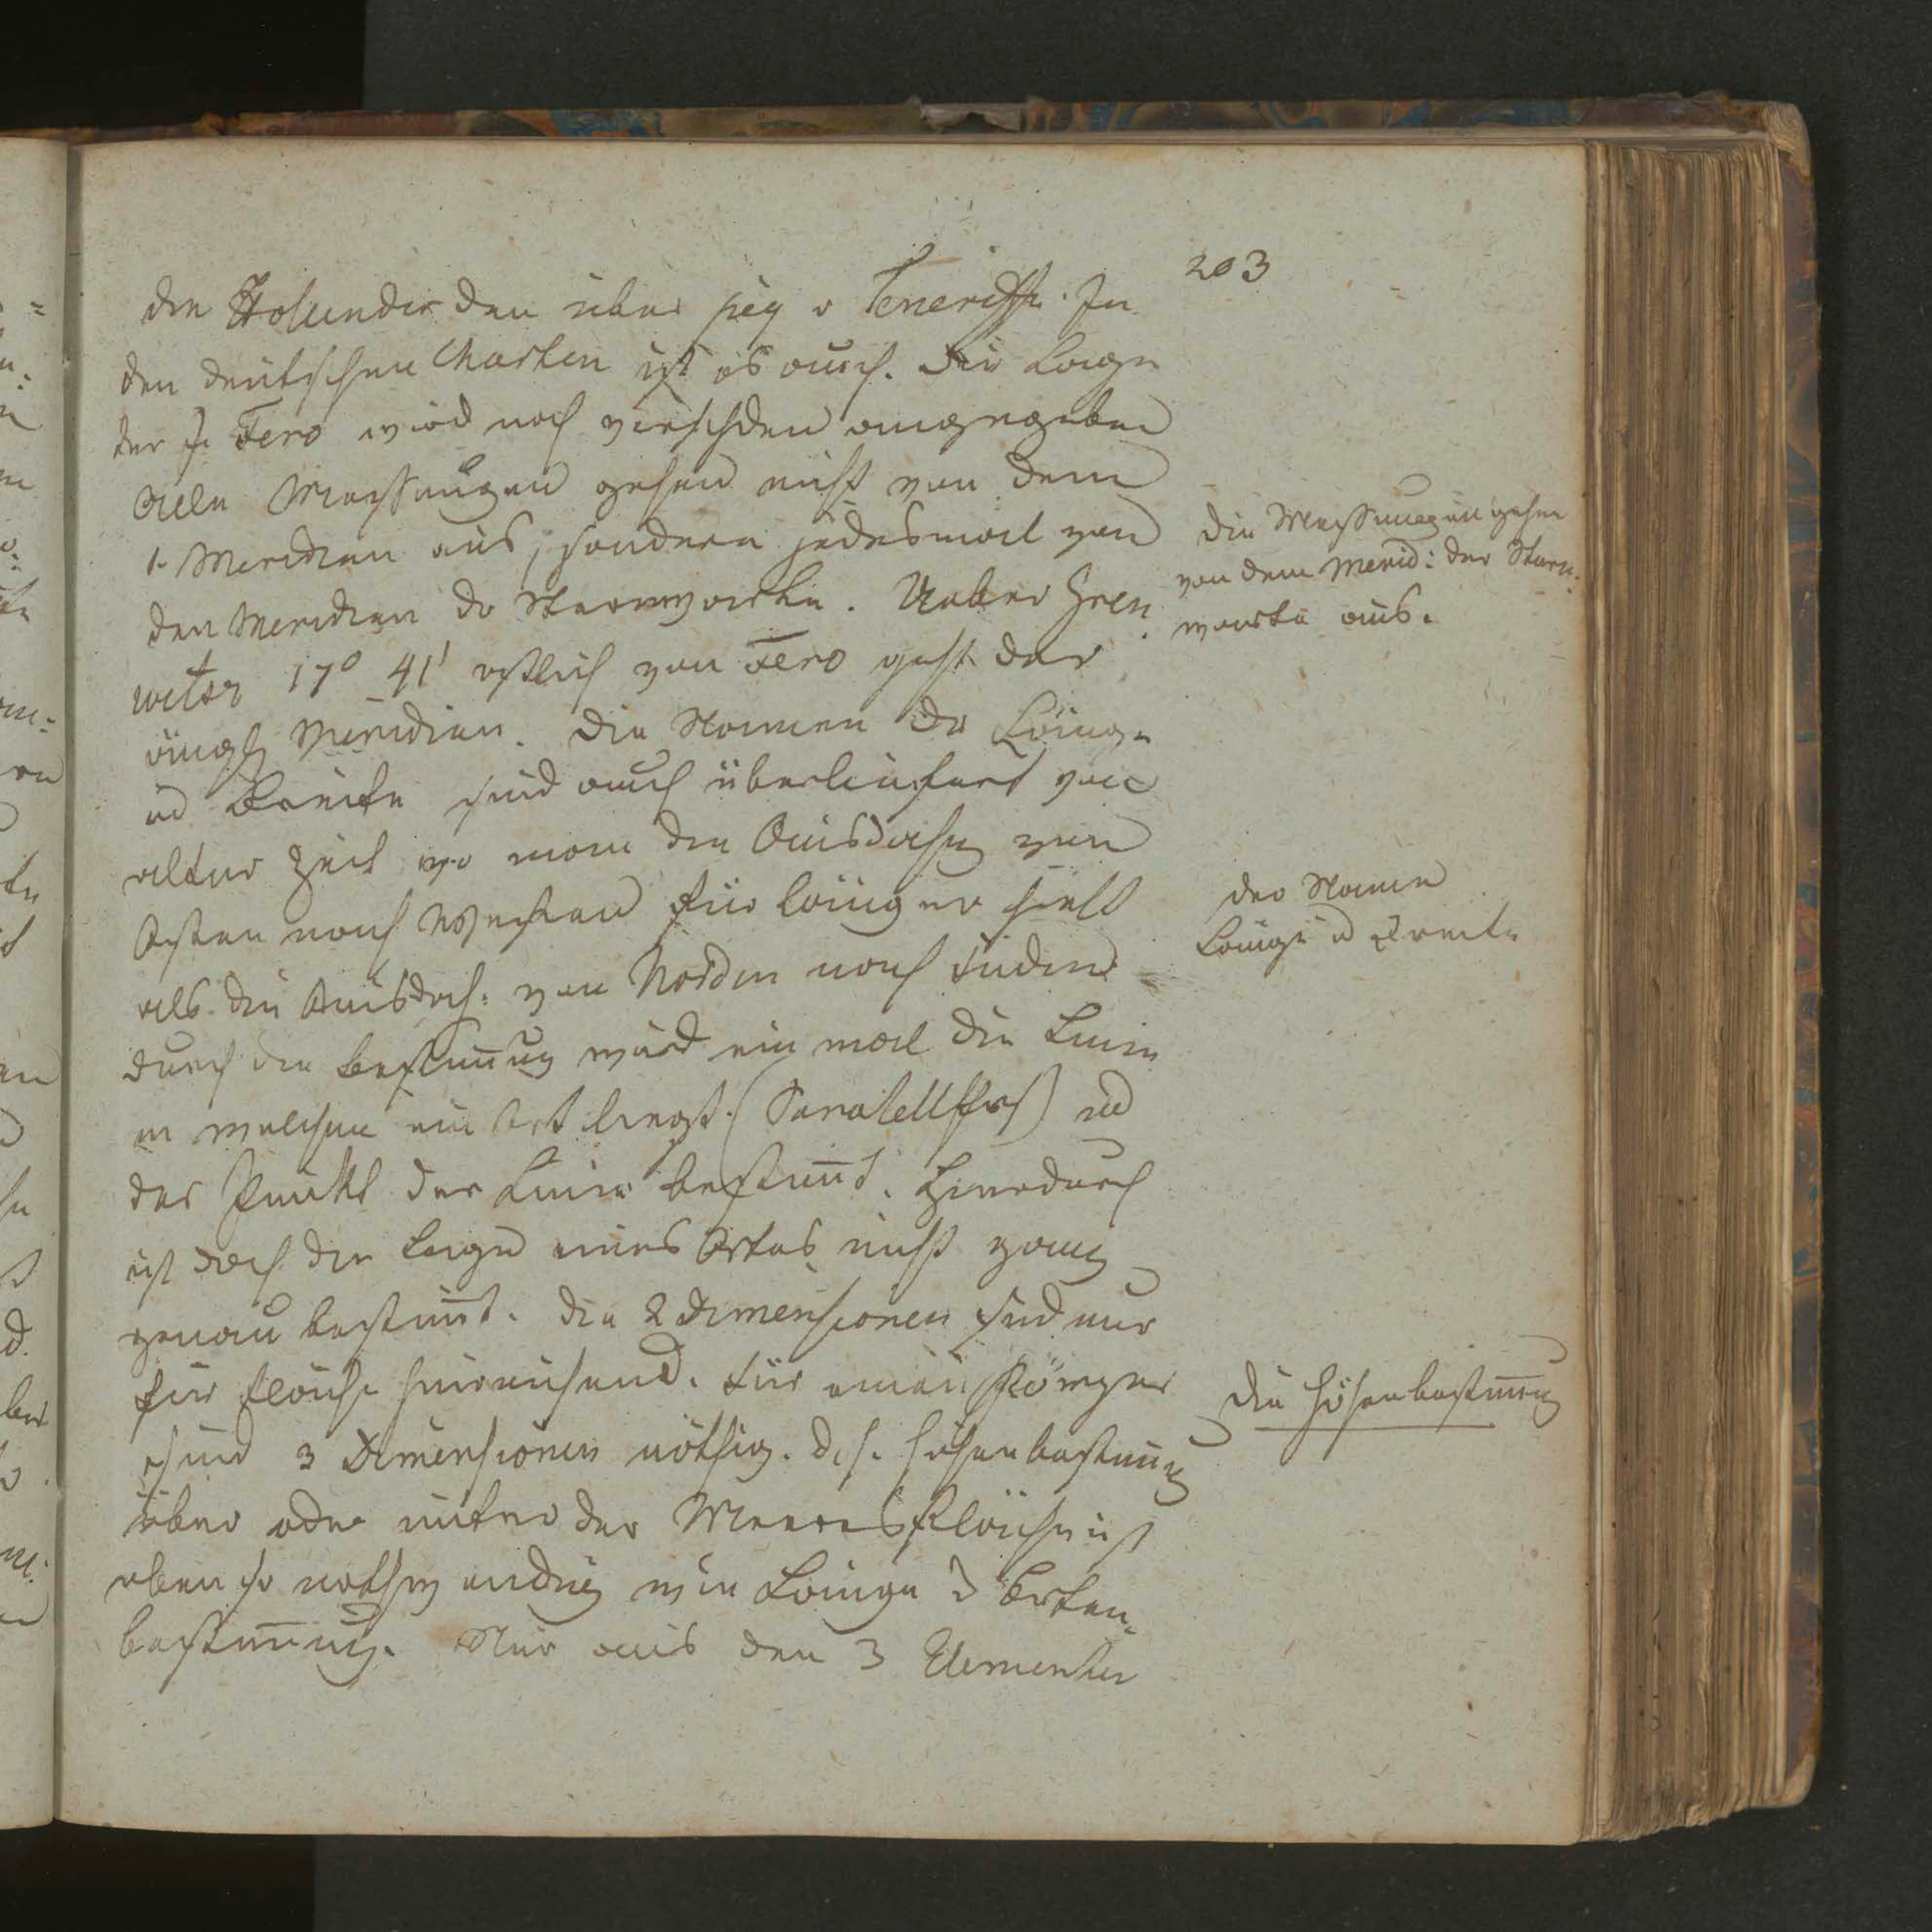 203
die Holländer den über pig v Teneriffe. In
den deutschen Charten ist es auch. Die Lage
der J. Fero wird noch verschden angegeben
Alle Messungen gehen nicht von dem
1. Meridian aus, sondern jedesmal von
den Meridian dr Sternwarte. Ueber Gren
witsz 17° 41' östlich von Fero geht der
englsch Meridian. Die Namen dr Länge
ud Breite sind auch überliefert von
alter Zeit wo man die Ausdehng von
Osten nach Westen für länger hielt
als die Ausdeh: von Norden nach Süden
durch die Bestim̅ung wird ein mal die Linie
in welcher ein Ort liegt (Paralellkrs) ud
der Punkt der Linie bestim̅t. Hierdurch
ist doch die Lage eines Ortes nicht ganz
genau bestim̅t. Die 2 Dimensionen sind nur
für Fläche hinreichend. Für einen Körper
sind 3 Dimensionen nöthig. d. h. Höhenbestim̅ng
über oder unter der Meeresfläche ist
eben so nothwendig wie Länge d Orten
bestim̅ung. Nur aus den 3 Elementen
Die Messungen gehen
von dem Merid: der Stern
warte aus.
Der Name
Länge ud Breite
Die Höhenbestim̅ng